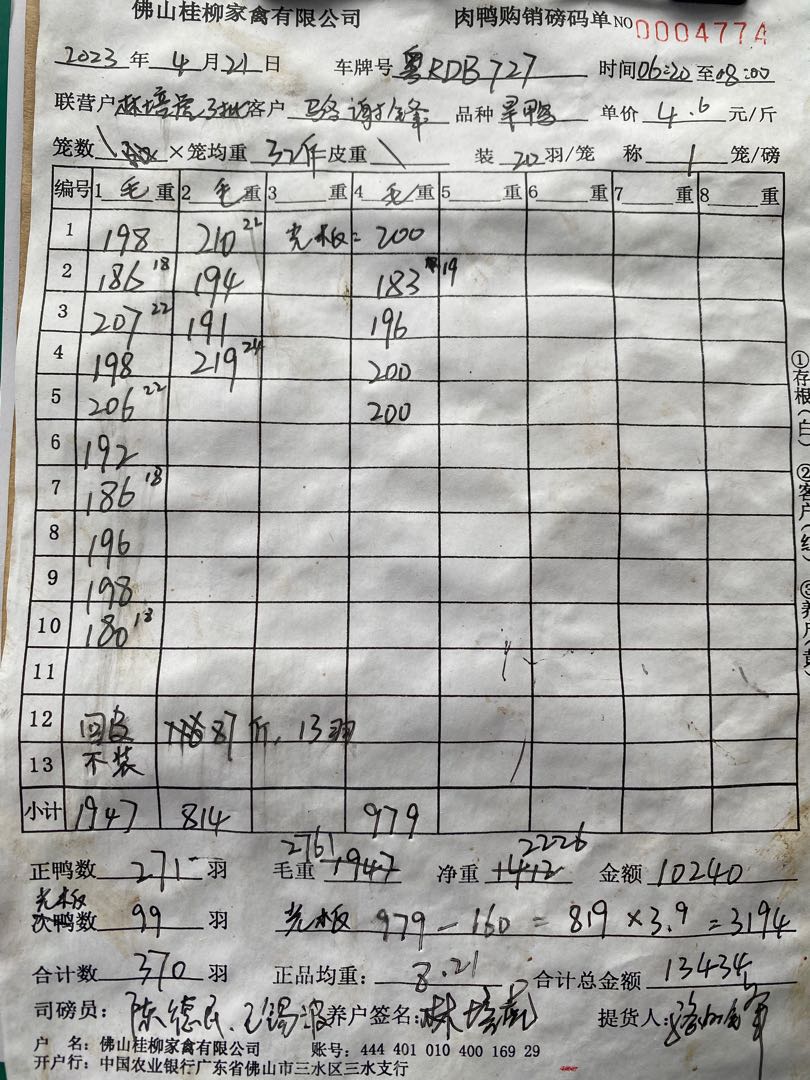 佛山桂柳家禽有限公司 肉鸭购销磅码单 NO 0004774
2023 年 4 月 21 日 车牌号 粤RDB727 时间 06:20 至 08:00
联营户 林培 客户 谢 锋 品种 旱鸭 单价 4.6 元/斤
笼数 \ ×笼均重 32斤 皮重 \ 装 20 羽/笼 称 1 笼/磅
编号 1 毛 重 2 毛 重 3 重 4 毛 重 5 重 6 重 7 重 8 重
1 198 210 22 光板= 200
2 186 18 194 183 19
3 207 22 191 196
4 198 219 24 200
5 206 22 200
6 192
7 186 18
8 196
9 198
10 180 18
11
12 回皮 87 斤, 13羽
13 不装
小计 1947 814 979
正鸭数 271 羽 毛重 2761 1947 净重 2226 1412 金额 10240
光板
次鸭数 99 羽 光板 979 - 160 = 819 × 3.9 = 3194
合计数 370 羽 正品均重: 8.21 合计总金额 13434
司磅员: 陈德民、王锡波 养户签名: 林培 提货人:
户 名: 佛山桂柳家禽有限公司 账号: 444 401 010 400 169 29
开户行: 中国农业银行广东省佛山市三水区三水支行
①存根(白) ②客户(红) ③养户(黄)